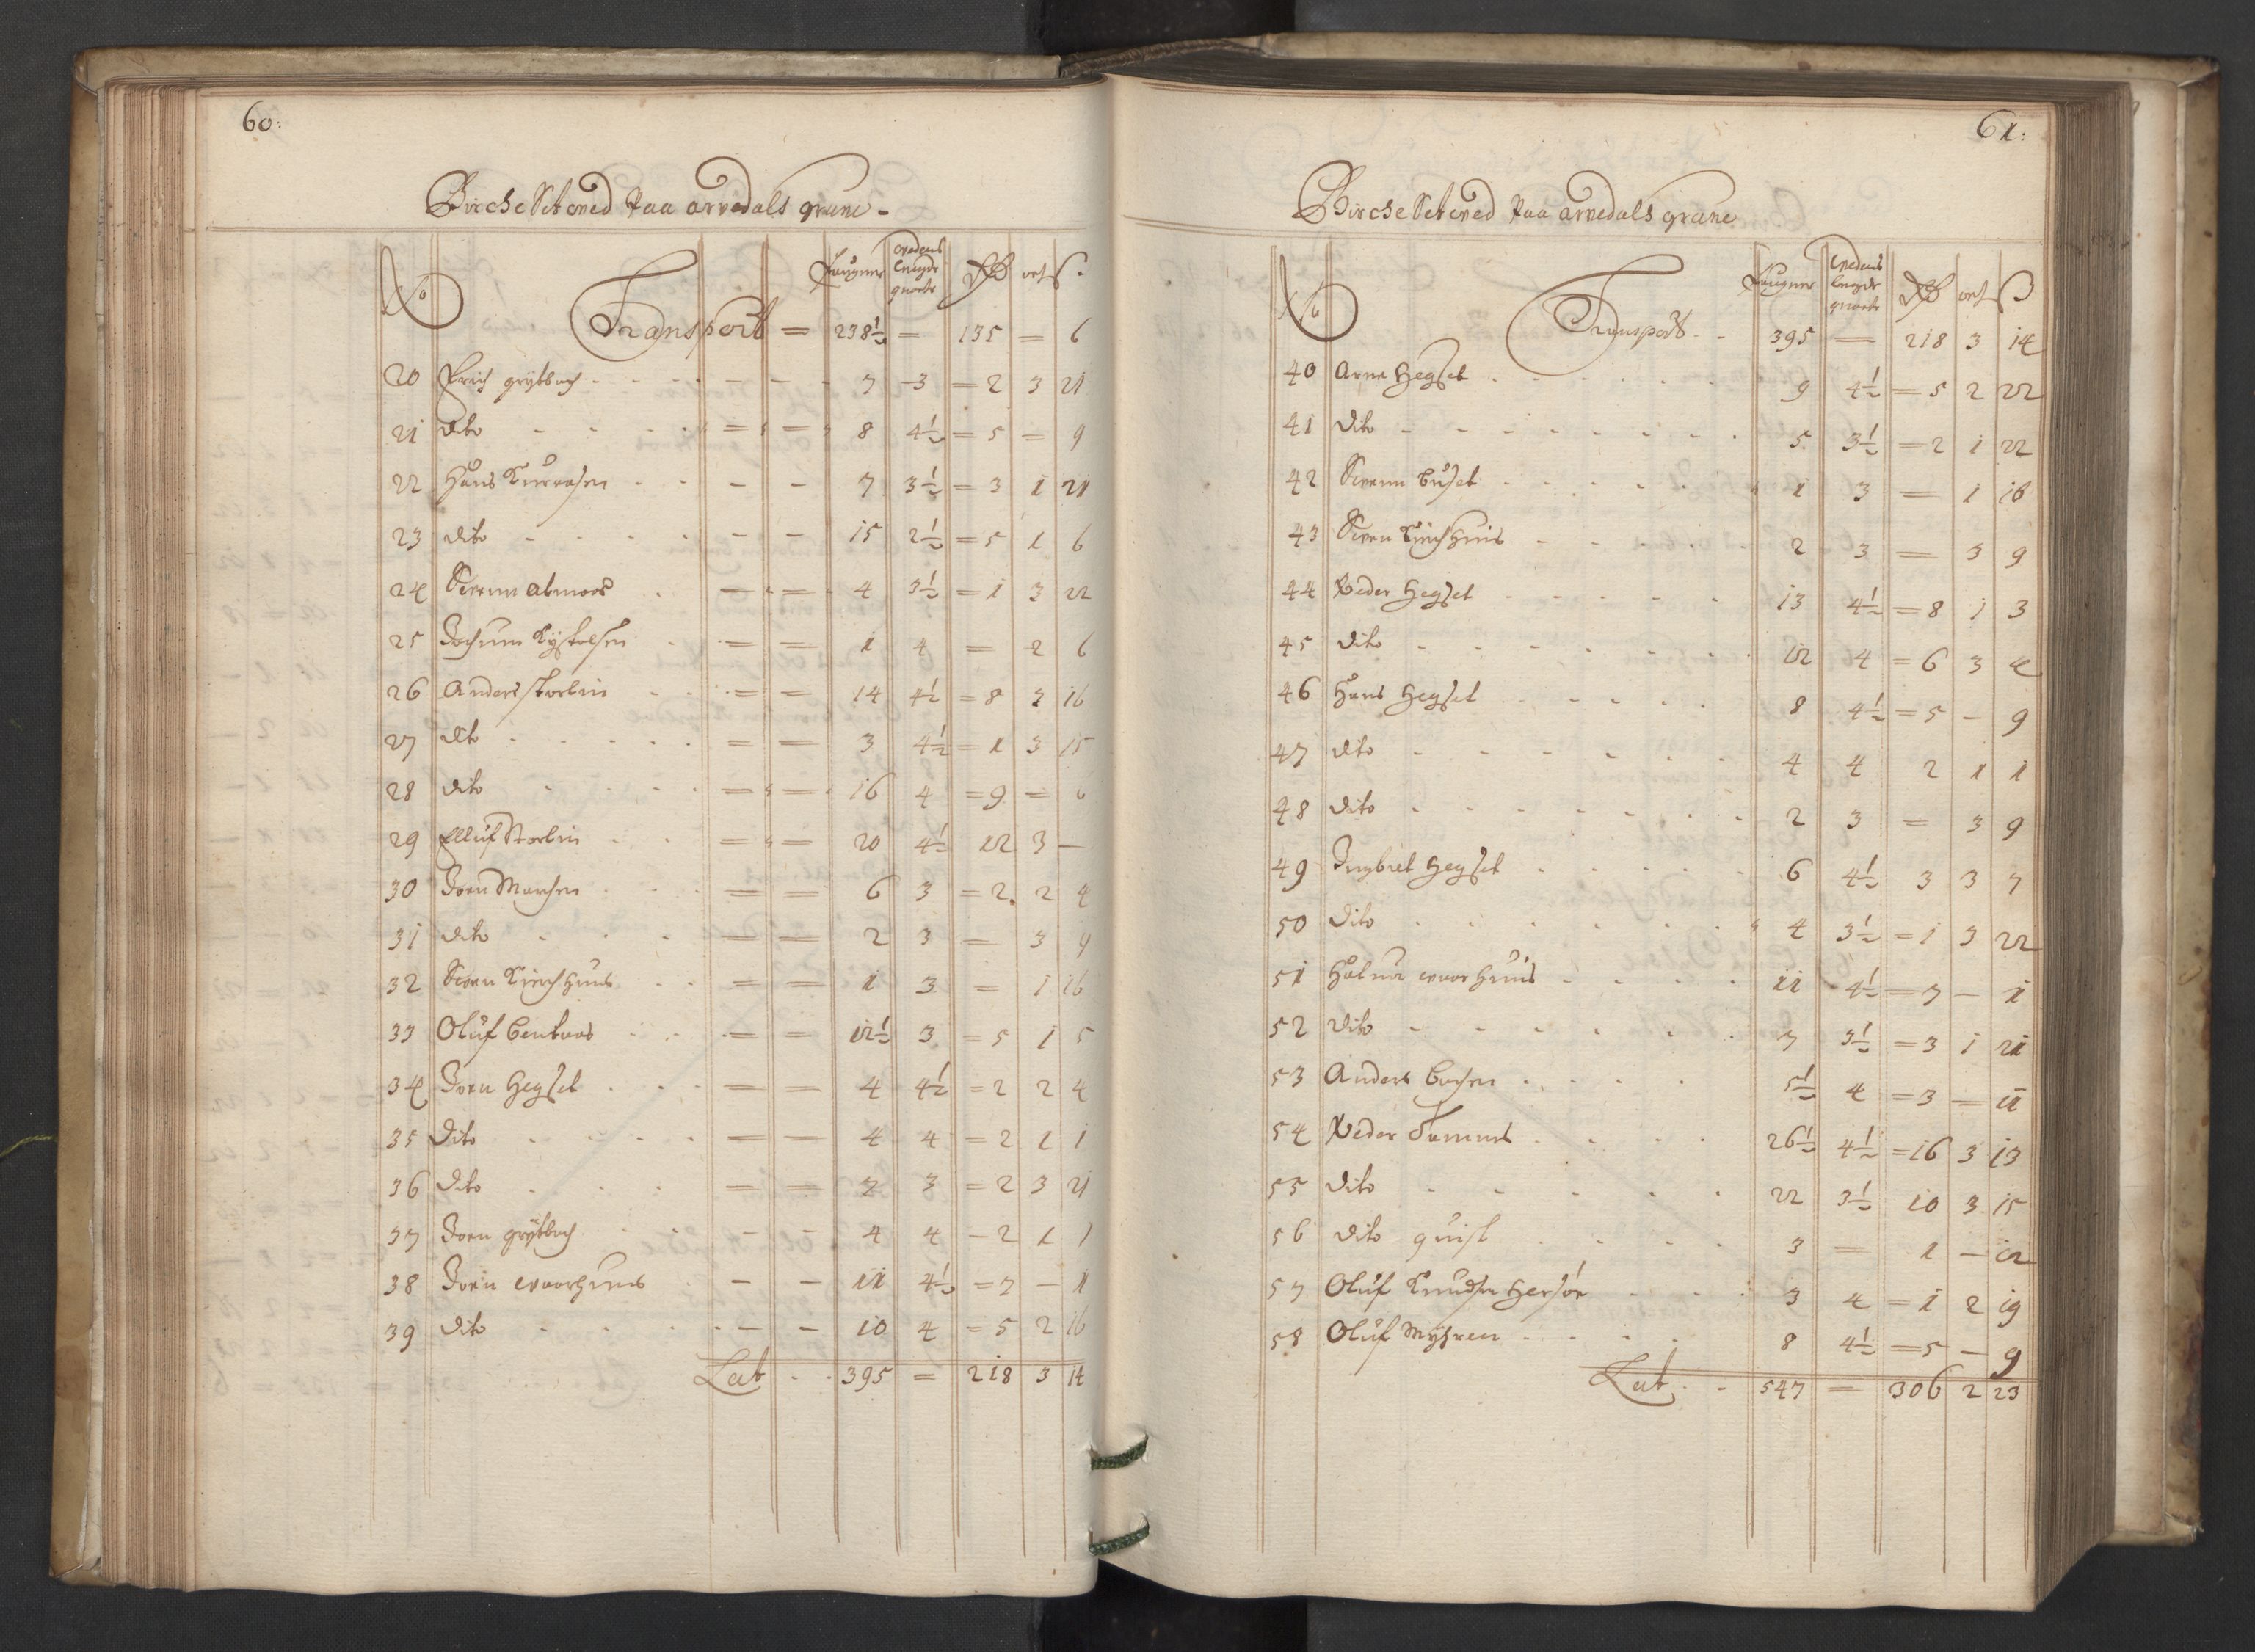 60:
Birche Setved paa arvedals grane
No Faugner vedens lengde qvarter Rd ort ß
Transport = 238½ = 135 = 6
20 Erich grytbach 7 3 = 2 3 21
21 dito 8 4½ = 5 = 9
22 Hans 7 3½ = 3 1 21
23 dito 15 2½ = 5 1 6
24 Svenn almoos 4 3½ = 1 3 22
25 Jochum 1 4 = 2 6
26 Anders storlin 14 4½ = 8 3 16
27 dito 3 4½ = 1 3 15
28 dito 16 4 = 9 = 6
29 Elluf Storlin 20 4½ 12 3 —
30 Joen 6 3 = 2 2 4
31 dito 2 3 = 3 9
32 Svenn Kirchhuus 1 3 = 1 16
33 Oluf bentaas 12½ 3 = 5 1 5
34 Joen Hegset 4 4½ = 2 2 4
35 Dito 4 4 = 2 1 1
36 Dito 7 3 = 2 3 21
37 Joen grytbach 4 4 - 2 1 1
38 Joen woorhuus 11 4½ = 7 — 1
39 dito 10 4 = 5 2 16
Lat 395 = 218 3 14
61:
Birche Setved paa arvedals grane
No Faugner vedens lengde qvarter Rd ort ß
Transport 395 — 218 3 14
40 Arne Hegset 9 4½ = 5 2 22
41 Dito 5 3½ = 2 1 22
42 Svenn buset 1 3 = 1 16
43 Svenn Kirchhuus 2 3 = 3 9
44 Peder Hegset 13 4½ = 8 1 3
45 dito 12 4 = 6 3 4
46 Hans Hegset 8 4½ = 5 — 9
47 dito 4 4 2 1 1
48 dito 2 3 = 3 9
49 Ingbret Hegset 6 4½ 3 3 7
50 dito 4 3½ = 1 3 22
51 woorhuus 11 4½ = 7 — 1
52 dito 7 3½ = 3 1 21
53 Anders 5½ 4 = 3 — 11
54 Peder 26½ 4½ = 16 3 13
55 dito 22 3½ 10 3 15
56 dito quist 3 — 1 — 12
57 Oluf Knudsen 3 4 = 1 2 19
58 Oluf Myhren 8 4½ = 5 — 9
Lat 547 = 306 2 23